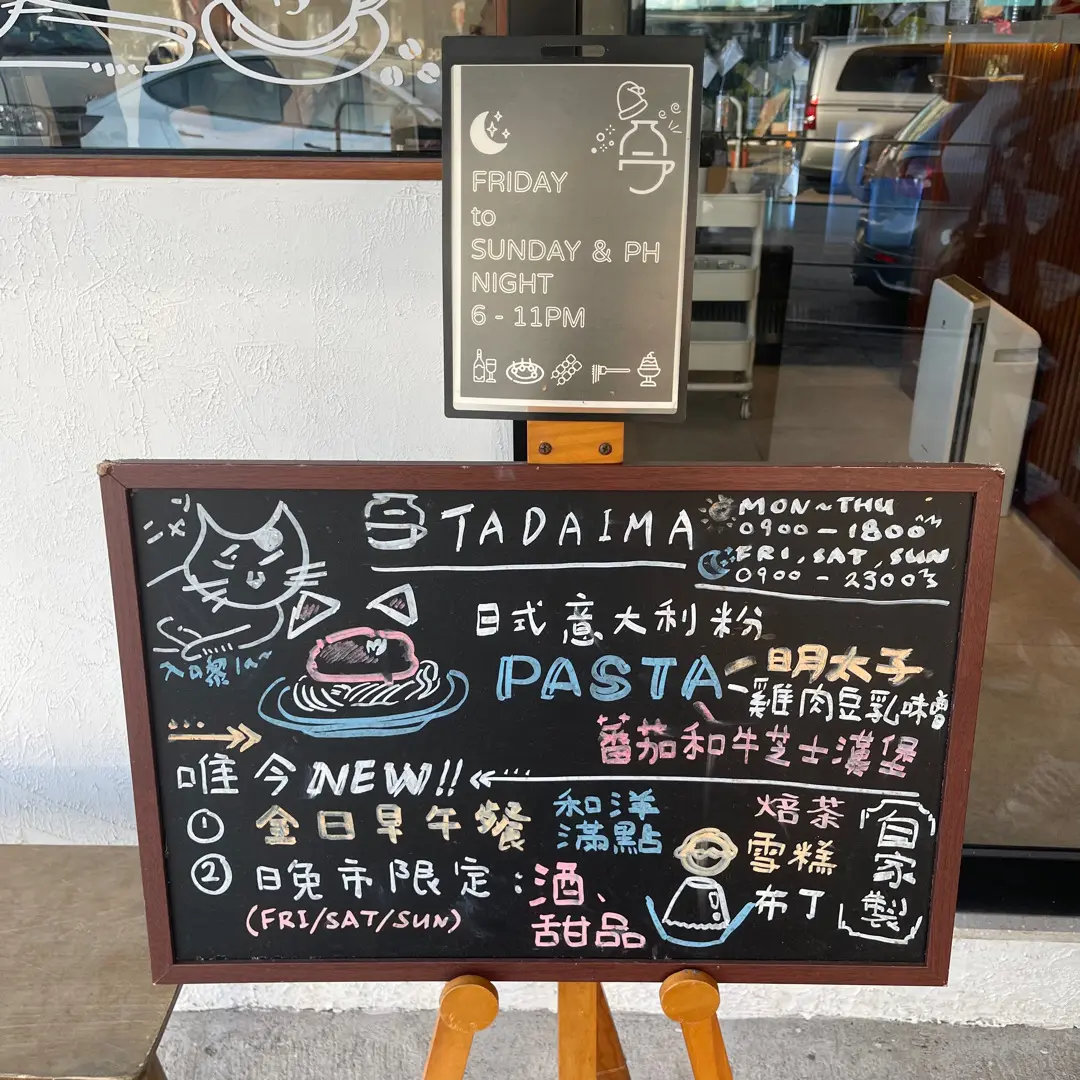 FRIDAY
to
SUNDAY & PH
NIGHT
6 - 11PM
TADAIMA
MON~THU
0900-1800
FRI, SAT, SUN
0900-2300
日式意大利粉
PASTA
明太子
雞肉豆乳味噌
蕃茄和牛芝士漢堡
唯今NEW!!
① 全日早午餐
和洋
滿點
② 日晚市限定:酒、
甜品
(FRI/SAT/SUN)
焙茶
雪糕
布丁
自家製